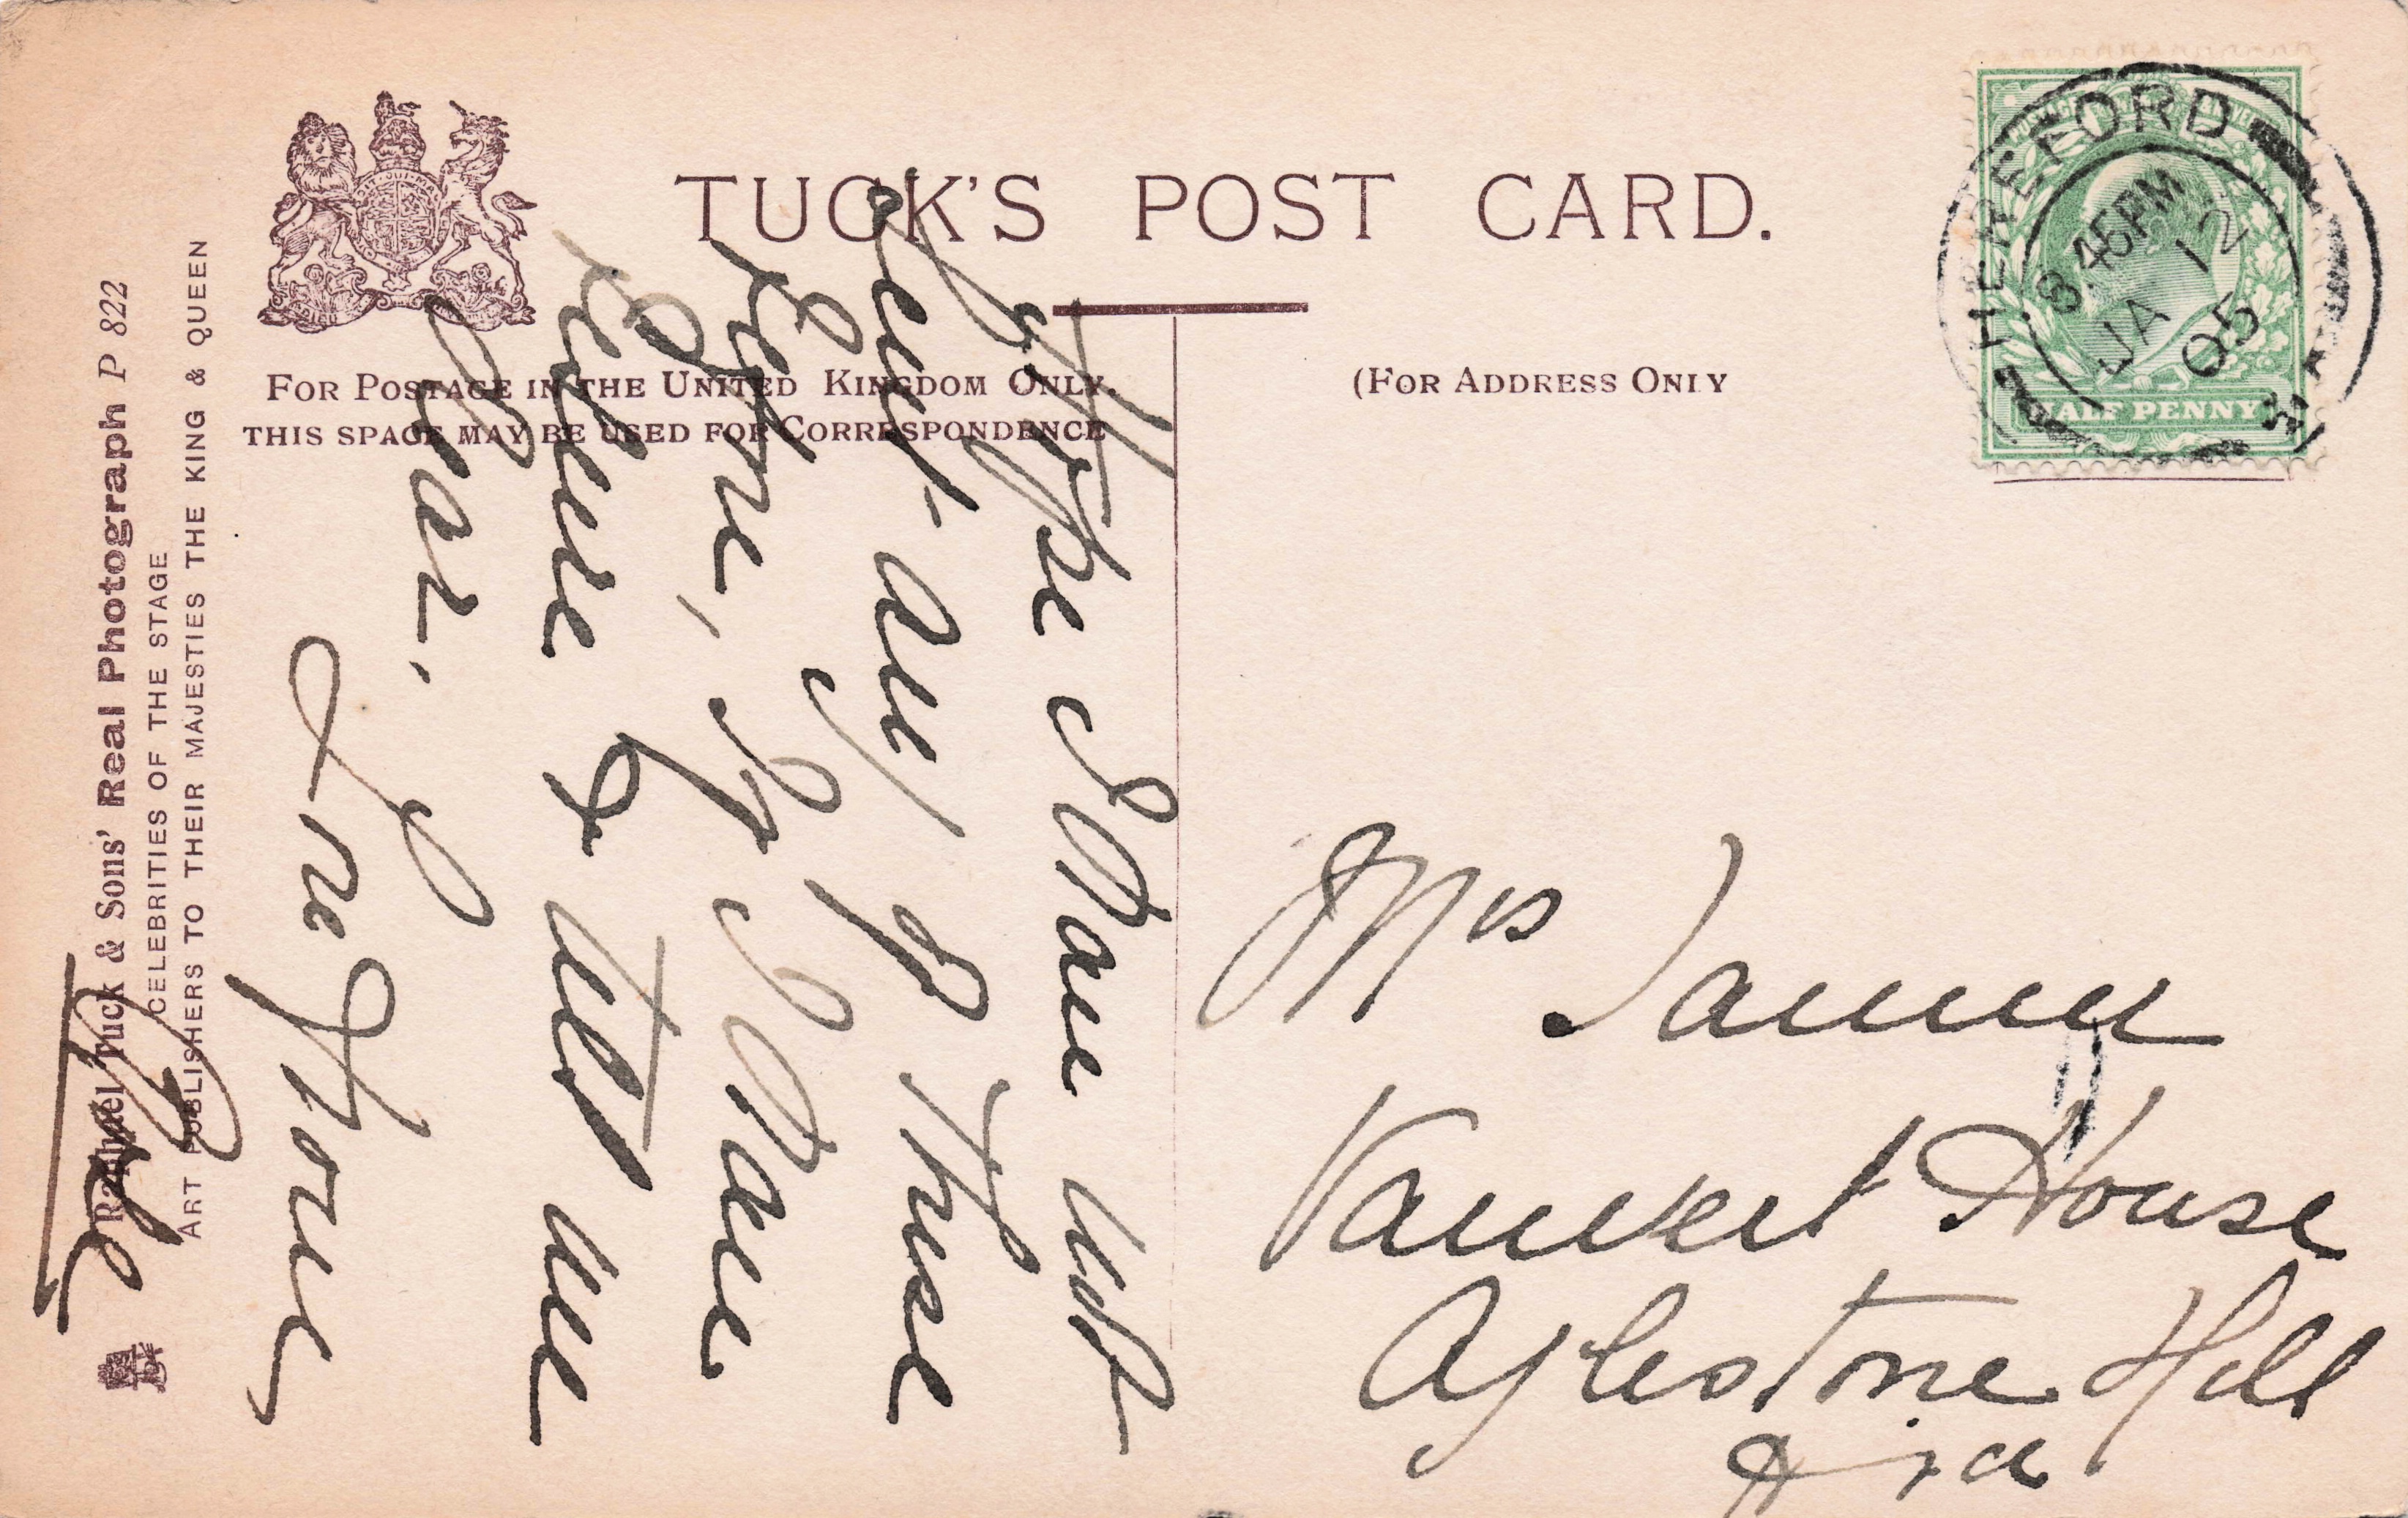 TUCK'S POST CARD.
FOR POSTAGE IN THE UNITED KINGDOM ONLY.
THIS SPACE MAY BE USED FOR CORRESPONDENCE
(FOR ADDRESS ONLY
HEREFORD
8.45PM
JA 12
05
HALF PENNY
I Hope I Have not
sent any of these
before, If I Have
return & tell me
Dear.
Love
Raphael Tuck & Sons' Real Photograph P 822
CELEBRITIES OF THE STAGE
ART PUBLISHERS TO THEIR MAJESTIES THE KING & QUEEN
Mrs
House
Aylestone Hill